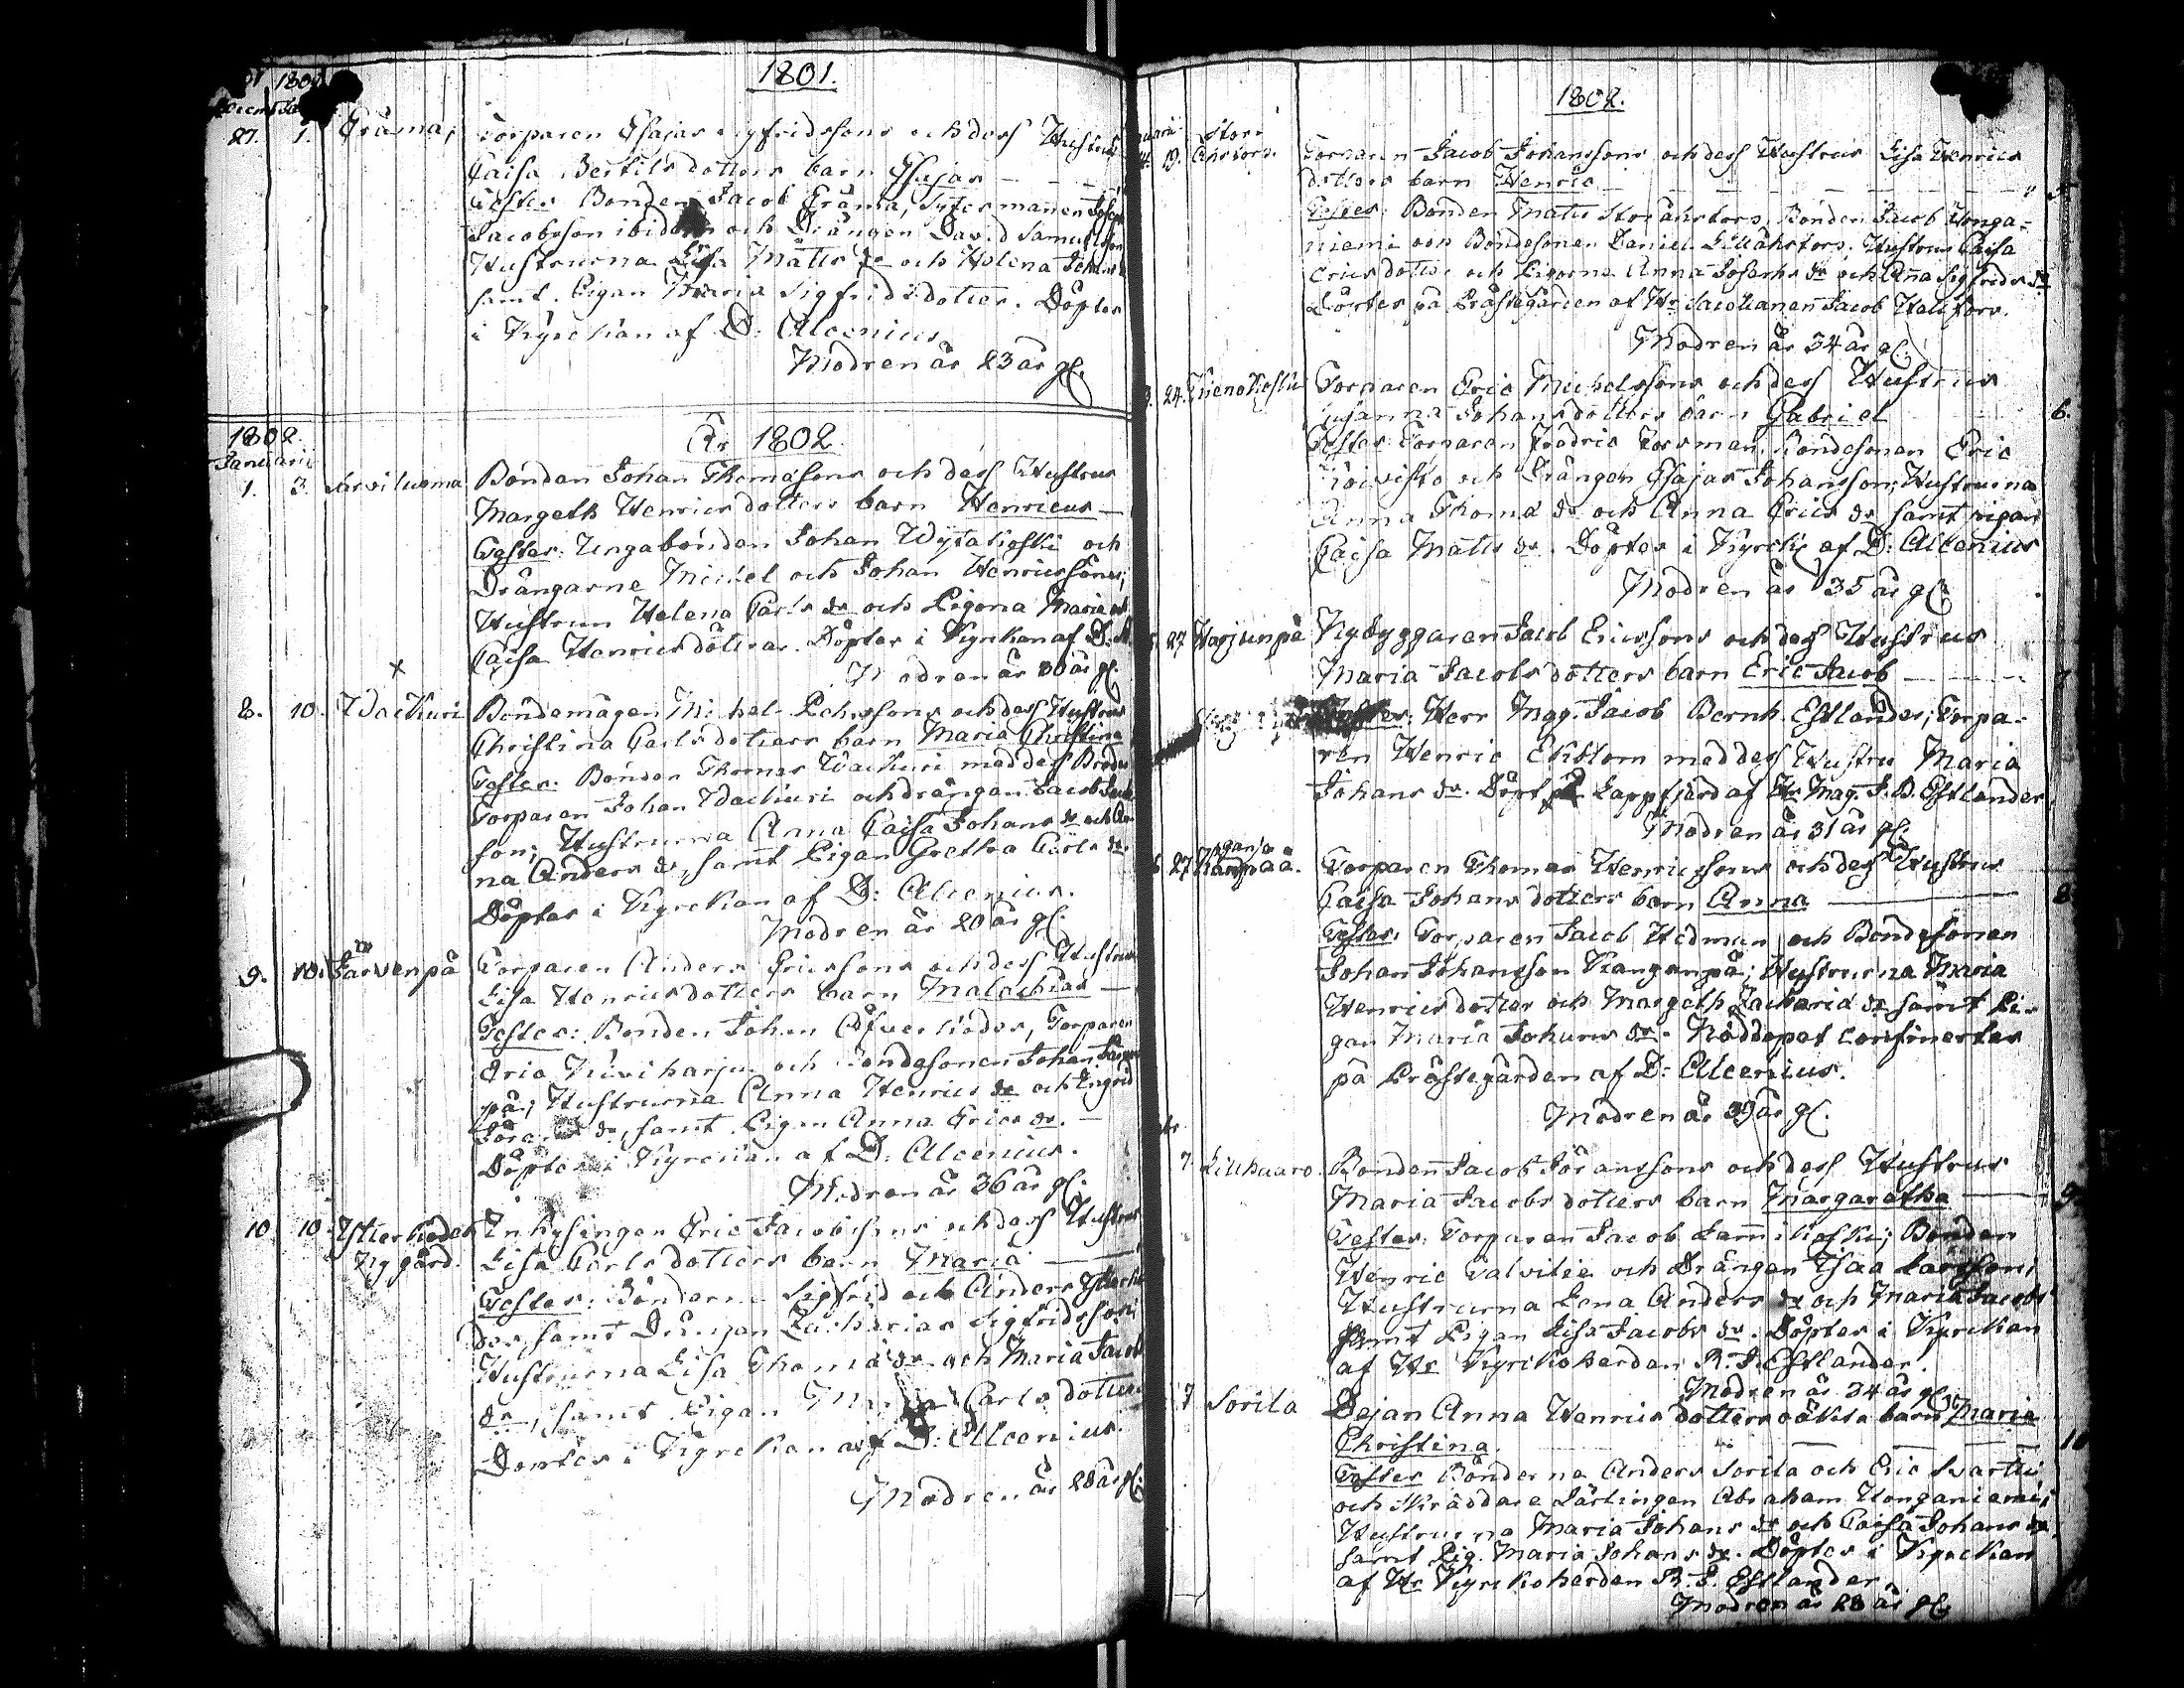 1801.
1802
27. 1. Gräma, Torparen Esajas Sigfridssons och dess Hustrus
Caisa Bertils dotters barn Esajas
Testes Bonden Jacob Gräma, Sytesmannen Joseph
Jacobsson ibidem och Drängen David Samuelsson
Hustrurna Lisa Matts dr och Helena Johans
samt Pigan Maria Sigfridsdotter. Döptes
i Kyrckan af D: Alcenius
Modren är 23 år gl.
1802.
Januarii
År 1802.
1. 3. Järviluoma Bonden Johan Thomæsons och dess Hustrus
Margeth Henrics dotters barn Henricus
Testes: Unga bonden Johan Wytakoski och
Drängarne Michel och Johan Henricssöner;
Hustrun Helena Carls dr och Pigorna Maria och
Caisa Henricsdötrar. Döptes i Kyrkan af D. A.
Modren är 30 år gl.
8. 10. Wackuri Bondemågen Michel Pehrssons och dess Hustrus
Christina Carls dotters barn Maria Christina
Testes: Bonden Thomas Wackuri med dess Broder
Torparen Johan Wackuri och drängen Jacob Jacobs
son; Hustrurna Anna Caisa Johans dr och An
na Anders dr, samt Pigan Gretha Carls dr.
Döptes i Kyrckan af D: Alcenius.
Modren är 20 år gl.
9. 10. Järvenpä Torparen Anders Ericssons och dess Hustrus
Lisa Henricsdotters barn Malachias
Testes: Bonden Johan Öfverköder, Torparen
Eric Kiviharju och Bondesonen Johan
pä; Hustrurna Anna Henrics dr och Ingrid
dr, samt Pigan Anna Erics dr.
Döptes i Kyrckan af D: Alcenius.
Modren är 36 år gl.
10. 10. Ytterköder Inhysingen Eric Jacobssons och dess Hustrus
Nygård. Lisa Carls dotters barn Maria
Testes: Bönderne Sigfrid och Anders Ytterkö
der, samt Drängen Zacharias Sigfridsson;
Hustrurna Lisa Thomæ dr och Maria Jacobs
dr, samt Pigan Maria Carls dotter
Döptes i Kyrckan af D: Alcenius.
Modren är 28 år gl.
1802.
19. Stor Åhrfors. Torparen Jacob Johanssons och dess Hustrus Lisa Henrics
dotters barn Henric
Testes: Bonden Matts Stor Åhrfors, Bonden Jacob Honga-
niemi och Bondesonen Daniel Lillåhrfors; Hustrun Caisa
Erics dotter och Pigorna Anna Josephs dr och Anna Sigfrids dr
Döptes på Prästegården af Hr Sacellanen Jacob Hallfors.
Modren är 34 år gl.
24. Torparen Eric Michelssons och dess Hustrus
Susanna Johansdotters barn Gabriel 6.
Testes: Torparen Fredric Forsman, Bondesonen Eric
Koivisto och Drängen Esajas Johansson; Hustrurna
Anna Thomæ dr och Anna Erics dr samt pigan
Caisa Matts dr. Döptes i Kyrcks af D: Alcenius
Modren är 35 år gl.
27 Harjunpä Nybyggaren Jacob Ericssons och dess Hustrus
Maria Jacobs dotters barn Eric Jacob 7
Testes: Herr Mag. Jacob Bernh. Estlander; Torpa-
ren Henric Ekblom med dess Hustru Maria
Johans dr. Döpt på Lappfjärd af Hr Mag. J. B. Estlander
Modren är 31 år gl.
6 27 Kanpää. Torparen Thomas Henricssons och dess Hustrus
Caisa Johans dotters barn Anna 8
Testes. Torparen Jacob Widman och Bondesonen
Johan Johansson Kanganpä; Hustrurna Maria
Henricsdotter och Margeth Zachariæ dr samt Pi-
gan Maria Johans dr. Nöddopet confirmertes
på Prästegården af D: Alcenius.
Modren är 39 år gl.
7. Lillkuaro. Bonden Jacob Göranssons och dess Hustrus
Maria Jacobs dotters barn Margaretha 9.
Testes: Torparen Jacob Lamikoski; Bonden
Henric Valvilie och Drängen Isaa Larsson;
Hustrurna Lena Anders dr och Maria Jacobs
samt Pigan Lisa Jacobs dr. Döptes i Kyrckan
af Hr Kyrckoherden R. J. Estlander.
Modren är 34 år gl.
7 Sorila Dejan Anna Henrics dotters oäkta barn Maria
Christina. 10
Testes Bönderna Anders Sorila och Eric Svartti
och Skräddare Lärlingen Abraham Honganiemi;
Hustrurna Maria Johans dr och Caisa Johans dr,
samt Pig. Maria Johans dr. Döptes i Kyrckan
af Hr Kyrckoherden R. J. Estlander.
Modren är 28 år gl.